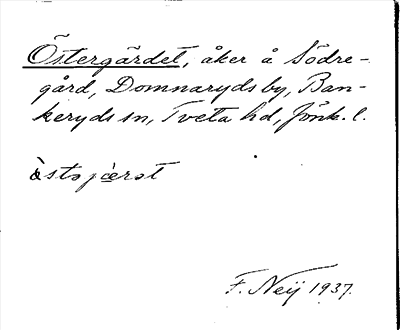 Östergärdet, åker å Södre-
gård, Domnaryds by, Ban-
keryds sn, Tveta hd, Jönk. l.
F. Neij 1937.